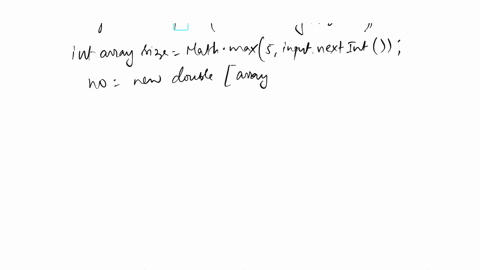 int array size = Math.max(5, input.nextInt());
no = new double [array